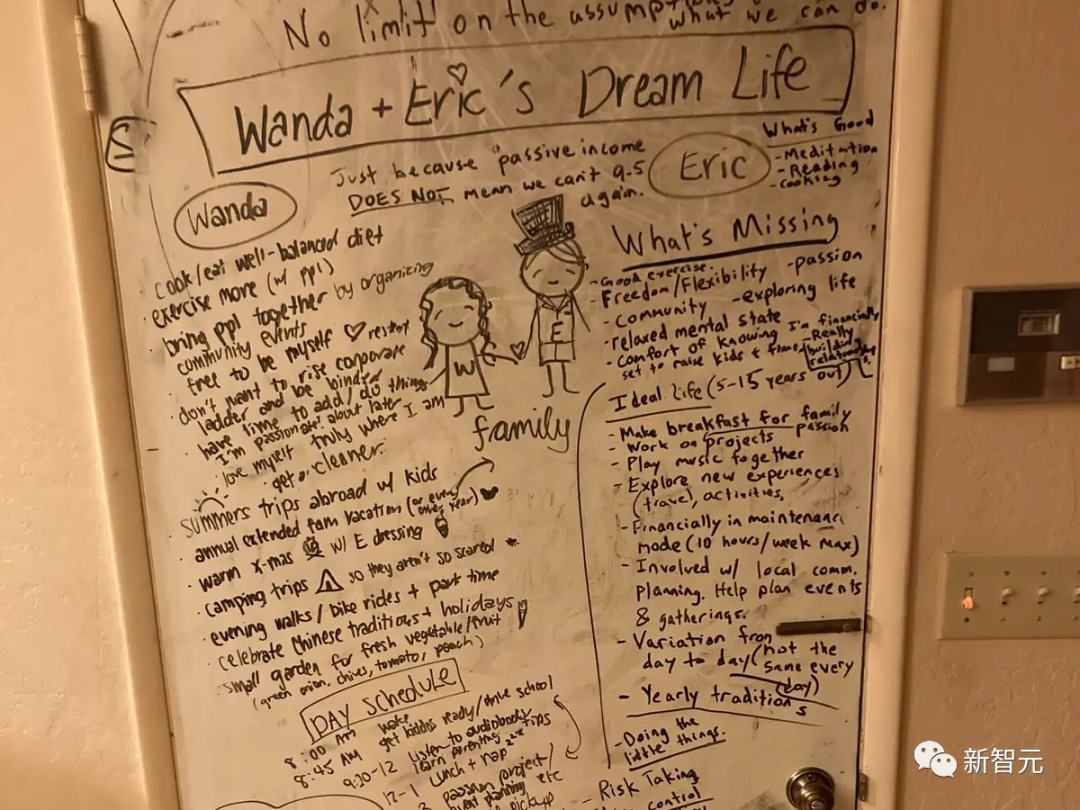 No limit on the assumptions
what we can do.
Wanda + Eric's Dream Life
Just because "passive income
DOES NOT mean we can't 9-5
again.
Wanda
cook/eat well-balanced diet
· exercise more (w/ ppl)
· bring ppl together by organizing
community events
· free to be myself
· don't want to rise corporate
ladder and be
have time to add/do things
I'm passionate about later
· love myself truly where I am
get cleaner.
W
E
family
summers trips abroad w/ kids
· annual extended fam vacation (or every
other year)
· warm x-mas w/ E dressing
· camping trips so they aren't so scared
· evening walks/bike rides + part time
· celebrate Chinese traditions + holidays
· small garden for fresh vegetable/fruit
(green onion, chives, tomato, peach)
DAY SCHEDULE
8:00 AM wake
8:45 AM get kiddos ready/drive school
9:20-12 listen to audiobooks
learn parenting tips
12-1 lunch + nap
passion project/
event planning
etc
pickup
Eric
What's Good
- Meditation
- Reading
- Cooking
What's Missing
- Good exercise.
- Freedom/Flexibility - passion
- Community - exploring life
- relaxed mental state
- Comfort of knowing I'm financially
set to raise kids + time
- Really
building
relationships
Ideal life (5-15 years out)
- Make breakfast for family
- Work on passion projects
- Play music together
- Explore new experiences
(travel, activities,
- Financially in maintenance
mode (10 hours/week max)
- Involved w/ local comm.
planning. Help plan events
& gatherings.
- Variation from
day to day (not the
same every
day)
- Yearly traditions
- Doing the
little things.
- Risk Taking
control
新智元